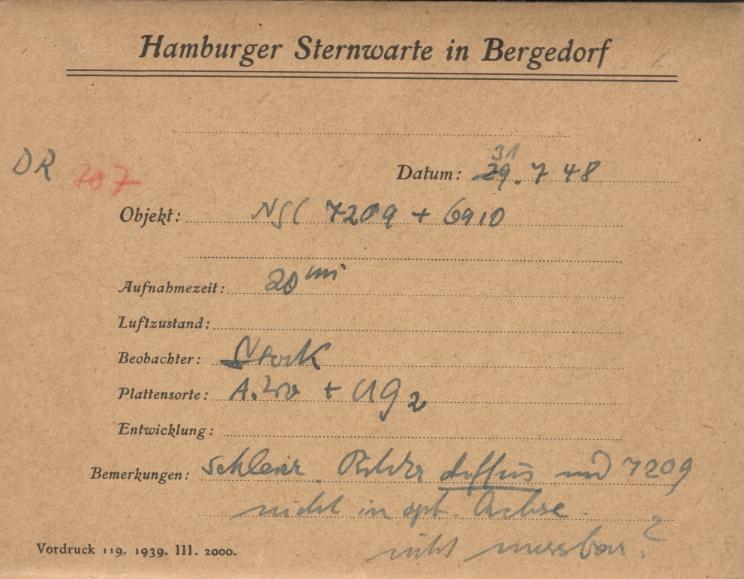 Hamburger Sternwarte in Bergedorf
DR 207
Datum: 31 29. 7 48
Objekt: NGC 7209 + 6910
Aufnahmezeit: 20 min
Luftzustand:
Beobachter: Stock
Plattensorte: + UG2
Entwicklung:
Bemerkungen: Schleier. Bilder diffus und 7209
nicht in opt. Achse.
nicht messbar?
Vordruck 119. 1939. III. 2000.